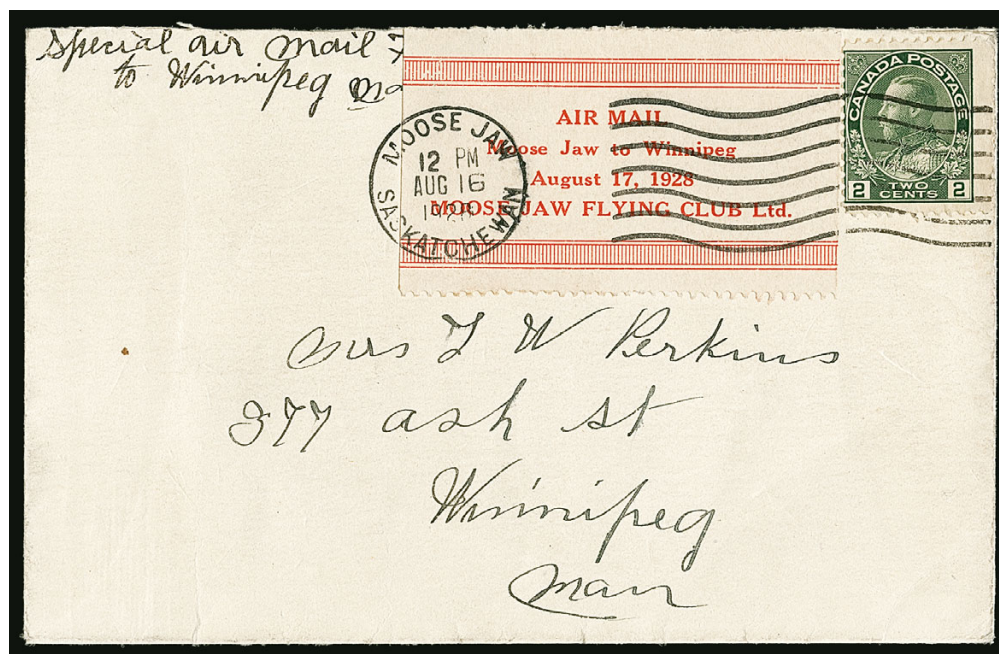 Special air mail
to Winnipeg
AIR MAIL
Moose Jaw to Winnipeg
August 17, 1928
MOOSE JAW FLYING CLUB Ltd.
MOOSE JAW
12 PM
AUG 16
1928
SASKATCHEWAN
CANADA POSTAGE
2 TWO CENTS 2
Mrs J W Perkins
377 ash st
Winnipeg
Man